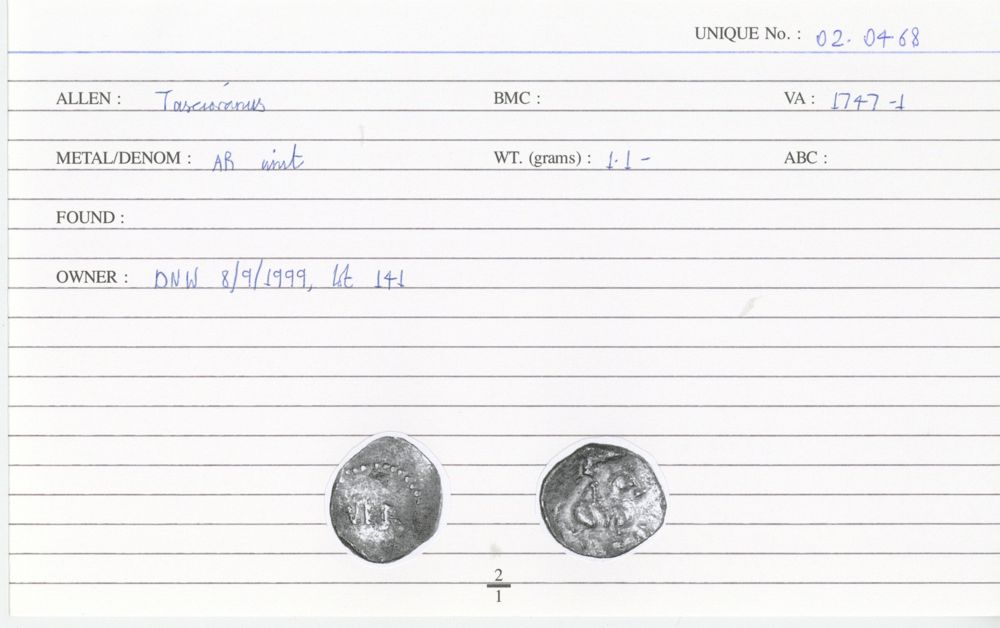 UNIQUE No. : 02. 0468
ALLEN : Tasciovanus BMC : VA : 1747-1
METAL/DENOM : AR unit WT. (grams) : 1.1- ABC :
FOUND :
OWNER : DNW 8/9/1999, lot 141
2
1